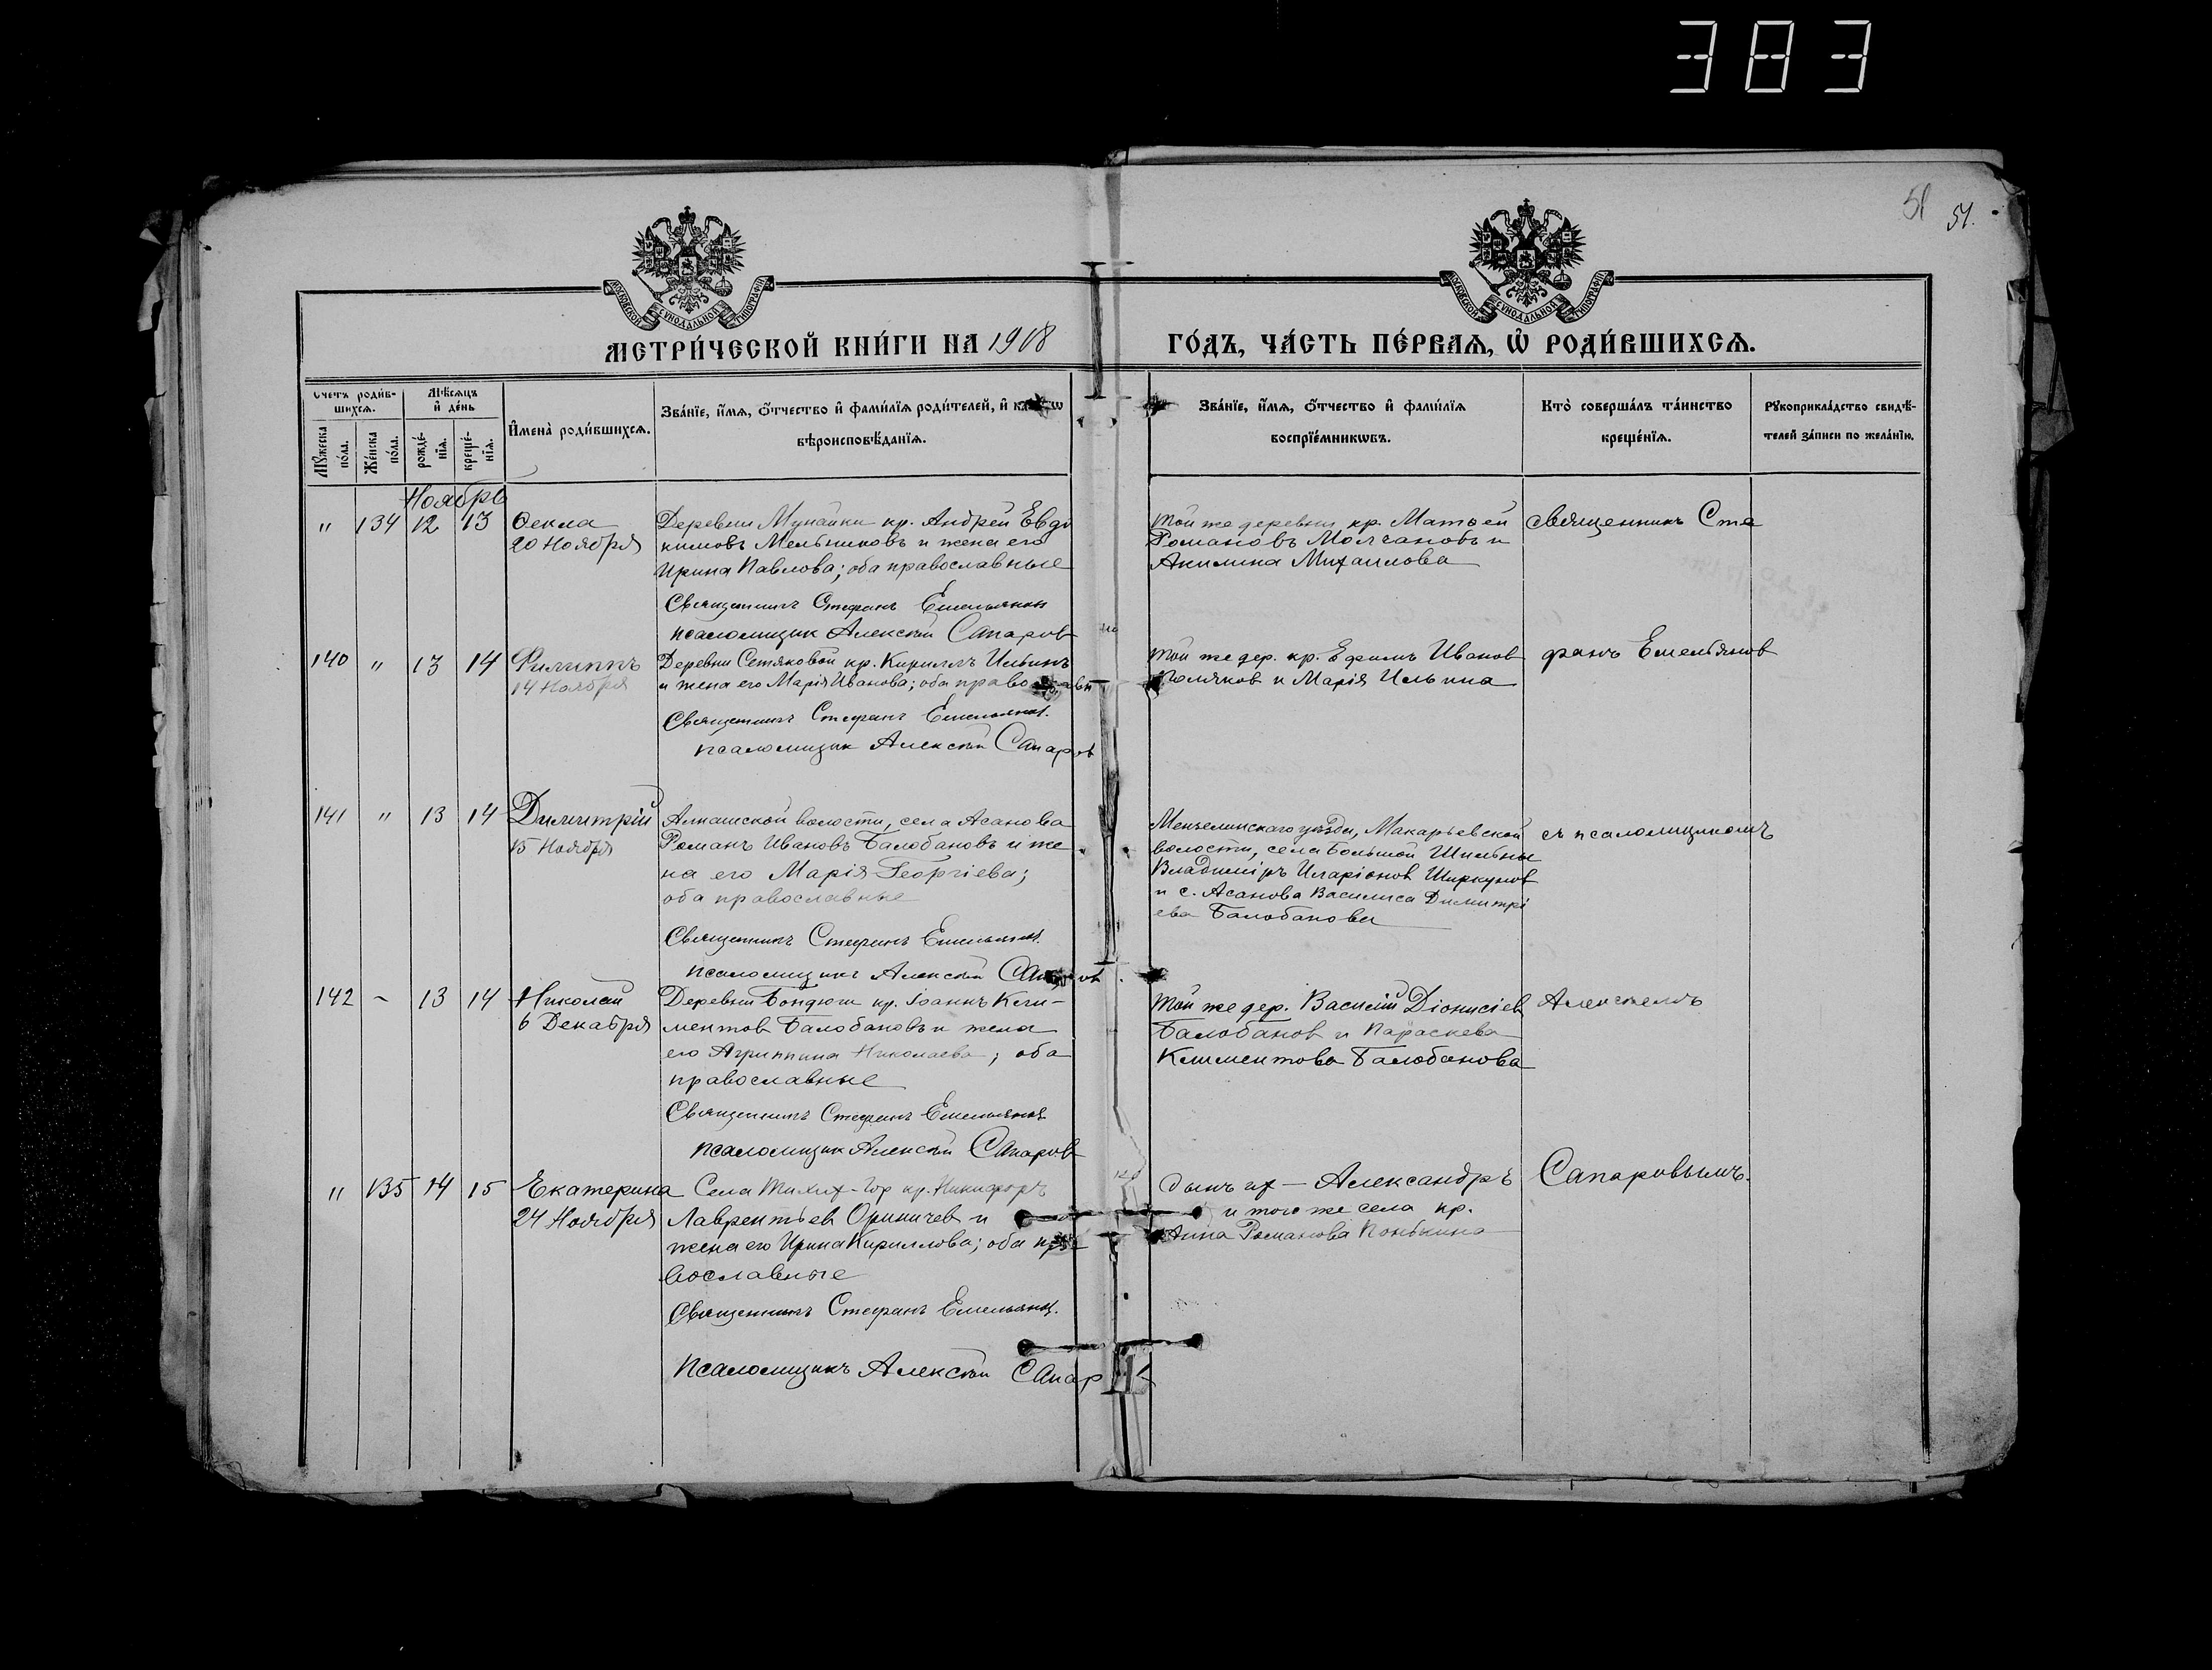 383
51 51.
МОСКОВСКОЙ СУНОДАЛЬНОЙ ТИПОГРАФІИ
МОСКОВСКОЙ СУНОДАЛЬНОЙ ТИПОГРАФІИ
МЕТРИ́ЧЕСКОЙ КНИ́ГИ НА 1908 ГО́ДЪ, ЧА́СТЬ ПЕ́РВАѦ, Ѡ҆ РОДИ́ВШИХСѦ.
Счетъ роди́вшихсѧ.
Мѣ́сѧцъ и҆ де́нь
Мꙋ́жеска по́ла.
Же́нска по́ла.
рожде́нїѧ.
креще́нїѧ.
И҆мена̀ роди́вшихсѧ.
Зва́нїе, и҆́мѧ, ѻ҆́тчество и҆ фами́лїѧ роди́телей, и҆
вѣроисповѣ́данїѧ.
Зва́нїе, и҆́мѧ, ѻ҆́тчество и҆ фами́лїѧ
воспрїе́мникѡвъ.
Кто̀ соверша́лъ та́инство
креще́нїѧ.
Рꙋкоприкла́дство свидѣ́-
телей за́писи по жела́нїю.
Ноябрь
" 134 12 13 Ѳекла
20 Ноября
Деревни Мунайки кр. Андрей Евдо
кимовъ Мельниковъ и жена его
Ирина Павлова; оба православные
Священникъ Стефанъ Емельянов
псаломщик Алексѣй Сапаров
Той же деревни кр. Матѳей
Романовъ Молчановъ и
Акилина Михаилова
священникъ Сте
140 " 13 14 Филиппъ
14 Ноября
Деревни Сетяковой кр. Кириллъ Ильинъ
и жена его Марія Иванова; оба правосл
Священникъ Стефанъ Емельянов.
псаломщик Алексѣй Сапаров
Той же дер. кр. Ефимъ Иванов
Поляков и Марія Ильина
фанъ Емельянов
141 " 13 14 Димитрій
15 Ноября
Алнашской волости, села Асанова
Романъ Ивановъ Балобановъ и же
на его Марія Георгіева;
оба православные
Священникъ Стефанъ Емельянов.
псаломщикъ Алексѣй Сапаров
Мензелинскаго уѣзда, Макарьевской
волости, села Большой Шильны
Владиміръ Иларіонов Ширкунов
и с. Асанова Василиса Димитрі
ева Балобанова
съ псаломщикомъ
142 - 13 14 Николай
6 Декабря
Деревни Бондюги кр. Іоаннъ Кли-
ментов Балобановъ и жена
его Агриппина Николаева; оба
православные
Священникъ Стефанъ Емельянов
псаломщик Алексѣй Сапаров
Той же дер. Василій Діонисіев
Балобанов и Параскева
Климентова Балобанова
Алексѣемъ
" 135 14 15 Екатерина
24 Ноября
Села Тихих-Гор кр. Никифоръ
Лаврентьев Ориничев и
жена его Ирина Кириллова; оба пра
вославные
Священникъ Стефанъ Емельянов.
Псаломщикъ Алексѣй Сапар
сынъ их - Александръ
и того же села кр.
Анна Романова Конькина
Сапаровымъ.